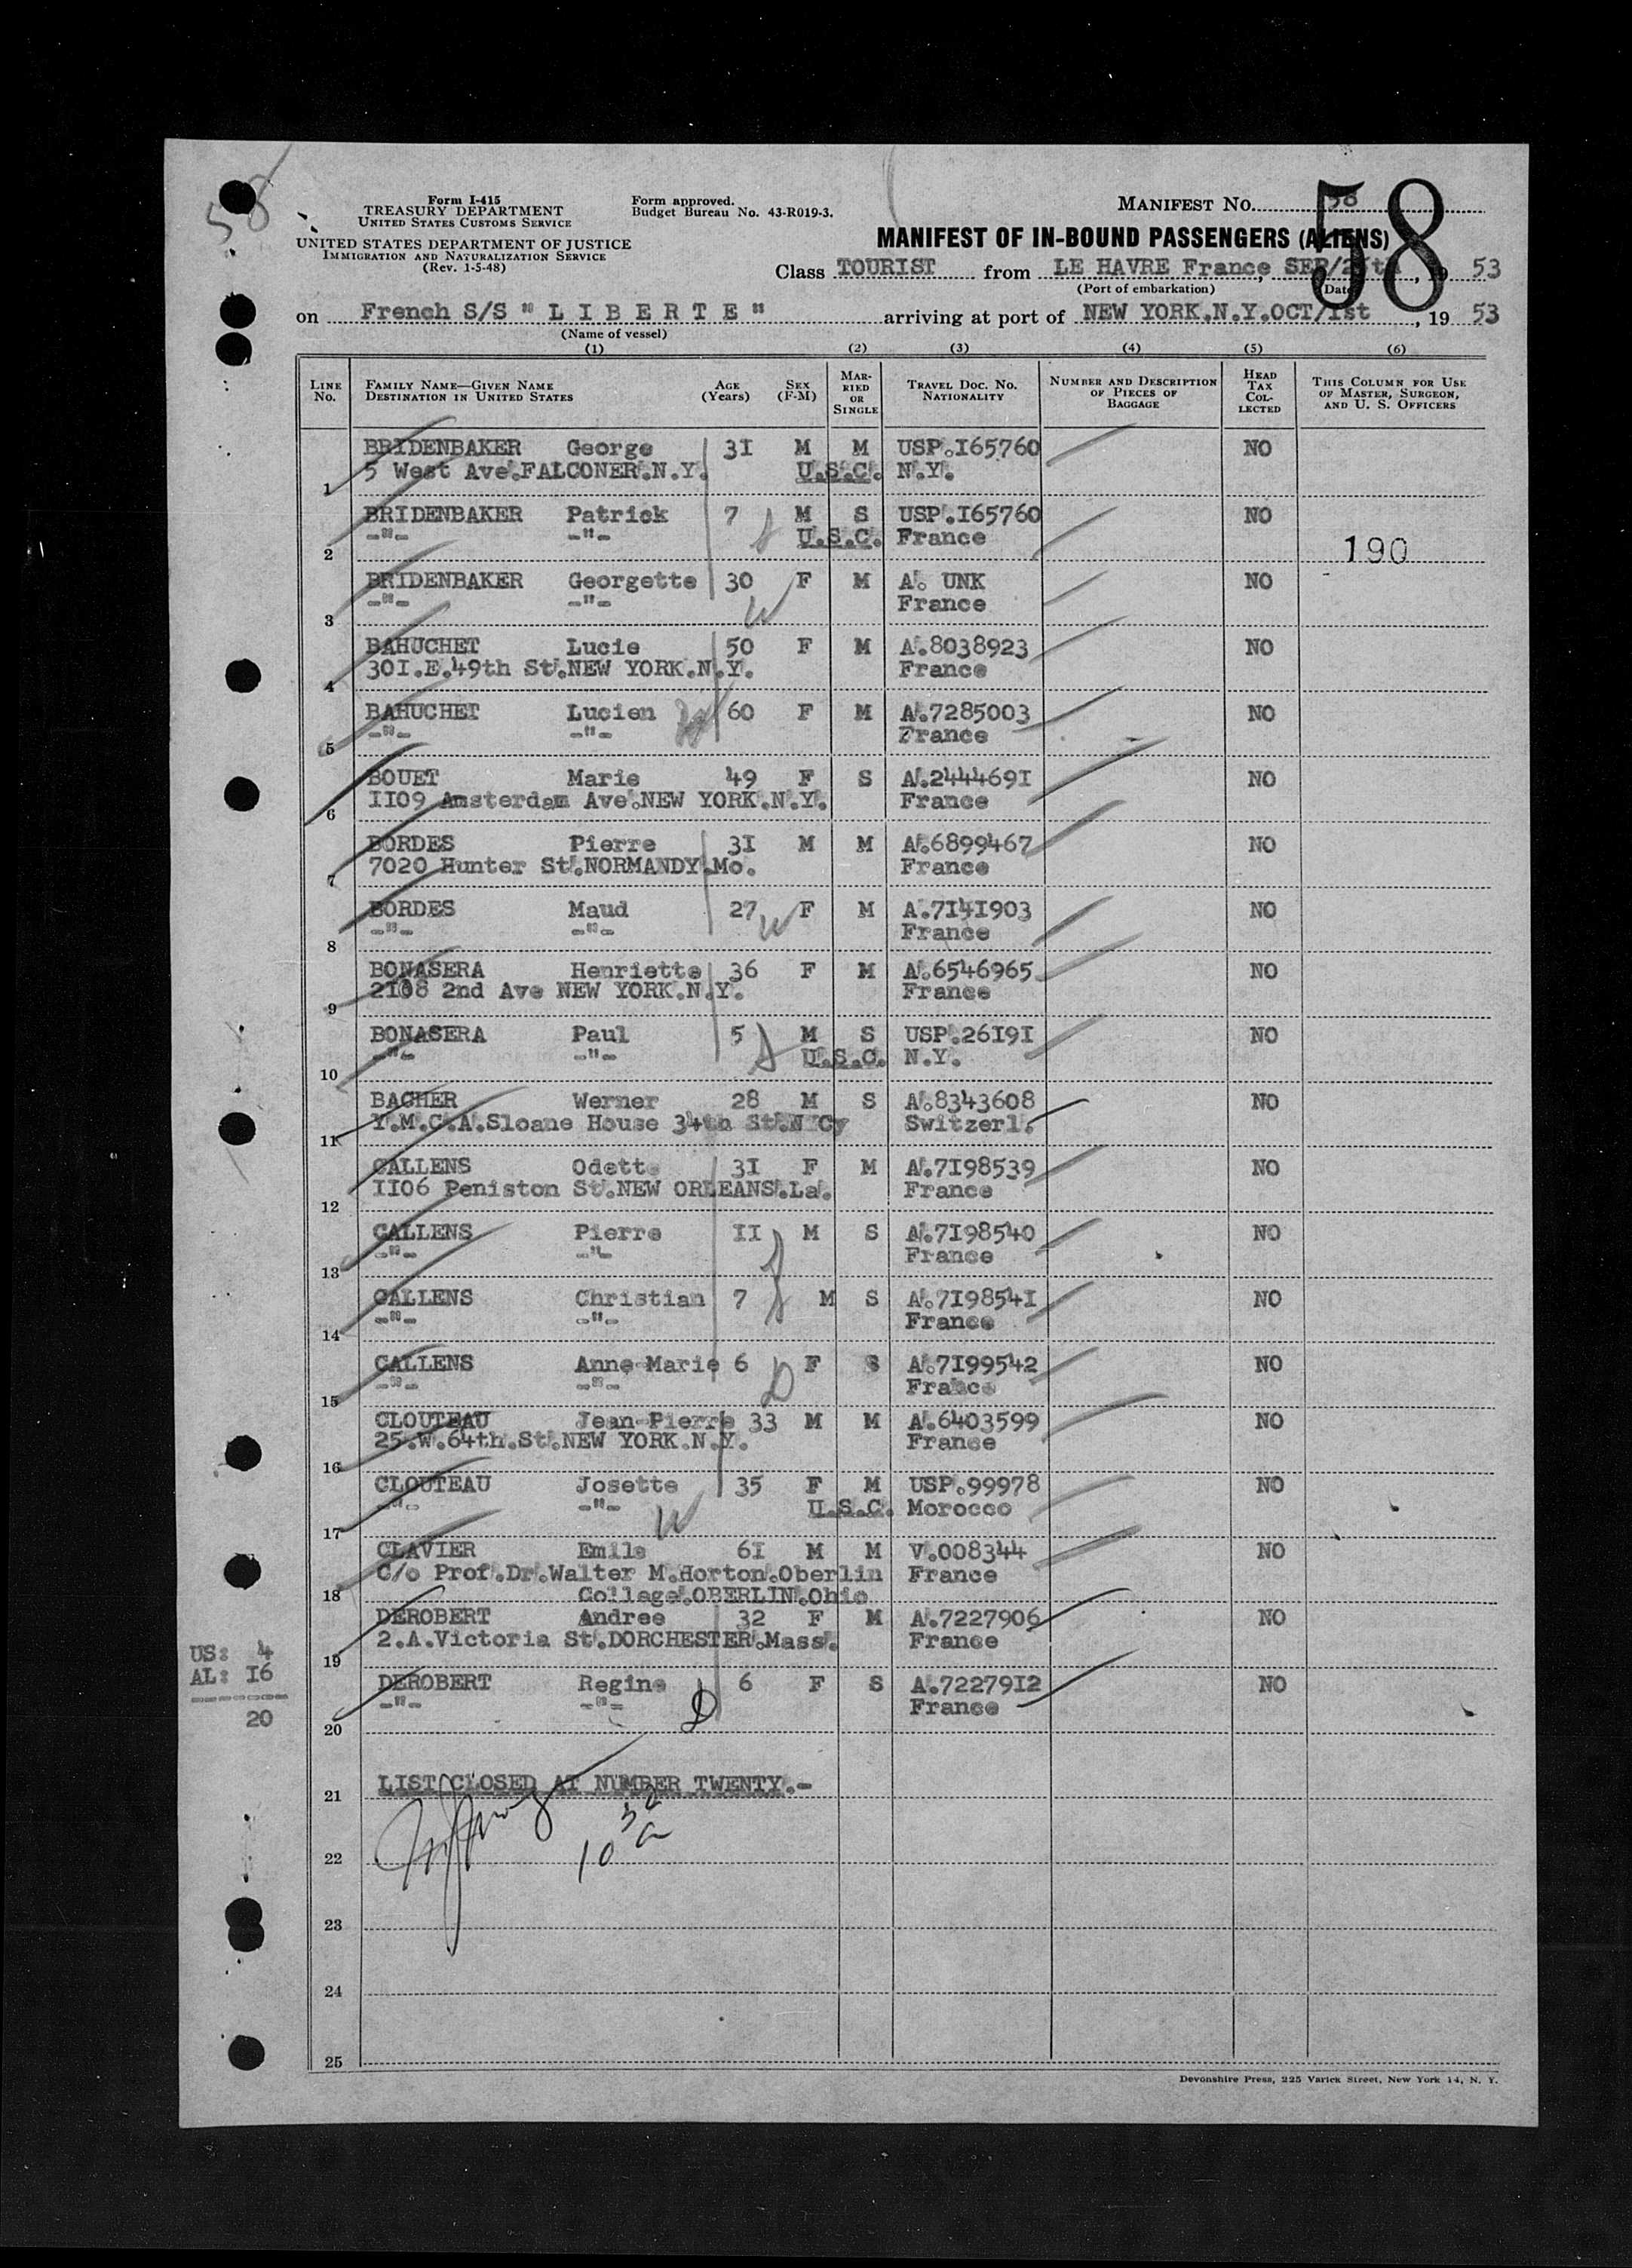 58
Form I-415
TREASURY DEPARTMENT
UNITED STATES CUSTOMS SERVICE
UNITED STATES DEPARTMENT OF JUSTICE
IMMIGRATION AND NATURALIZATION SERVICE
(Rev. 1-5-48)
Form approved.
Budget Bureau No. 43-R019-3.
MANIFEST NO. 58
58
MANIFEST OF IN-BOUND PASSENGERS (ALIENS)
Class TOURIST from LE HAVRE France, SEP/25th, 19 53
(Port of embarkation) (Date)
on French S/S " L I B E R T E " arriving at port of NEW YORK.N.Y.OCT/Ist, 19 53
(Name of vessel)
(1) (2) (3) (4) (5) (6)
LINE No. FAMILY NAME—GIVEN NAME DESTINATION IN UNITED STATES AGE (Years) SEX (F-M) MARRIED OR SINGLE TRAVEL DOC. NO. NATIONALITY NUMBER AND DESCRIPTION OF PIECES OF BAGGAGE HEAD TAX COLLECTED THIS COLUMN FOR USE OF MASTER, SURGEON, AND U. S. OFFICERS
BRIDENBAKER George 3I M M USP.I65760 NO
5 West Ave.FALCONER.N.Y. U.S.C. N.Y.
1
BRIDENBAKER Patrick 7 M S USP.I65760 NO
-"- -"- U.S.C. France
2 190
BRIDENBAKER Georgette 30 F M A. UNK NO
-"- -"- France
3
BAHUCHET Lucie 50 F M A.8038923 NO
30I.E.49th St.NEW YORK.N.Y. France
4
BAHUCHET Lucien 60 F M A.7285003 NO
-"- -"- France
5
BOUET Marie 49 F S A.244469I NO
II09 Amsterdam Ave.NEW YORK.N.Y. France
6
BORDES Pierre 3I M M A.6899467 NO
7020 Hunter St.NORMANDY.Mo. France
7
BORDES Maud 27 F M A.7I4I903 NO
-"- -"- France
8
BONASERA Henriette 36 F M A.6546965 NO
2I08 2nd Ave NEW YORK.N.Y. France
9
BONASERA Paul 5 M S USP.26I9I NO
-"- -"- U.S.C. N.Y.
10
BACHER Werner 28 M S A.8343608 NO
Y.M.C.A.Sloane House 34th St.N Cy Switzerl.
11
CALLENS Odette 3I F M A.7I98539 NO
II06 Peniston St.NEW ORLEANS.La. France
12
CALLENS Pierre II M S A.7I98540 NO
-"- -"- France
13
CALLENS Christian 7 M S A.7I9854I NO
-"- -"- France
14
CALLENS Anne-Marie 6 F S A.7I99542 NO
-"- -"- France
15
CLOUTEAU Jean-Pierre 33 M M A.6403599 NO
25.W.64th.St.NEW YORK.N.Y. France
16
CLOUTEAU Josette 35 F M USP.99978 NO
-"- -"- U.S.C. Morocco
17
CLAVIER Emile 6I M M V.008344 NO
C/o Prof.Dr.Walter M.Horton.Oberlin France
18 College.OBERLIN.Ohio
DEROBERT Andree 32 F M A.7227906 NO
2.A.Victoria St.DORCHESTER.Mass. France
19
US: 4
AL: I6
-------
20
DEROBERT Regine 6 F S A.72279I2 NO
-"- -"- France
20
LIST CLOSED AT NUMBER TWENTY.-
21
10 32 a
22
23
24
25
Devonshire Press, 225 Varick Street, New York 14, N. Y.